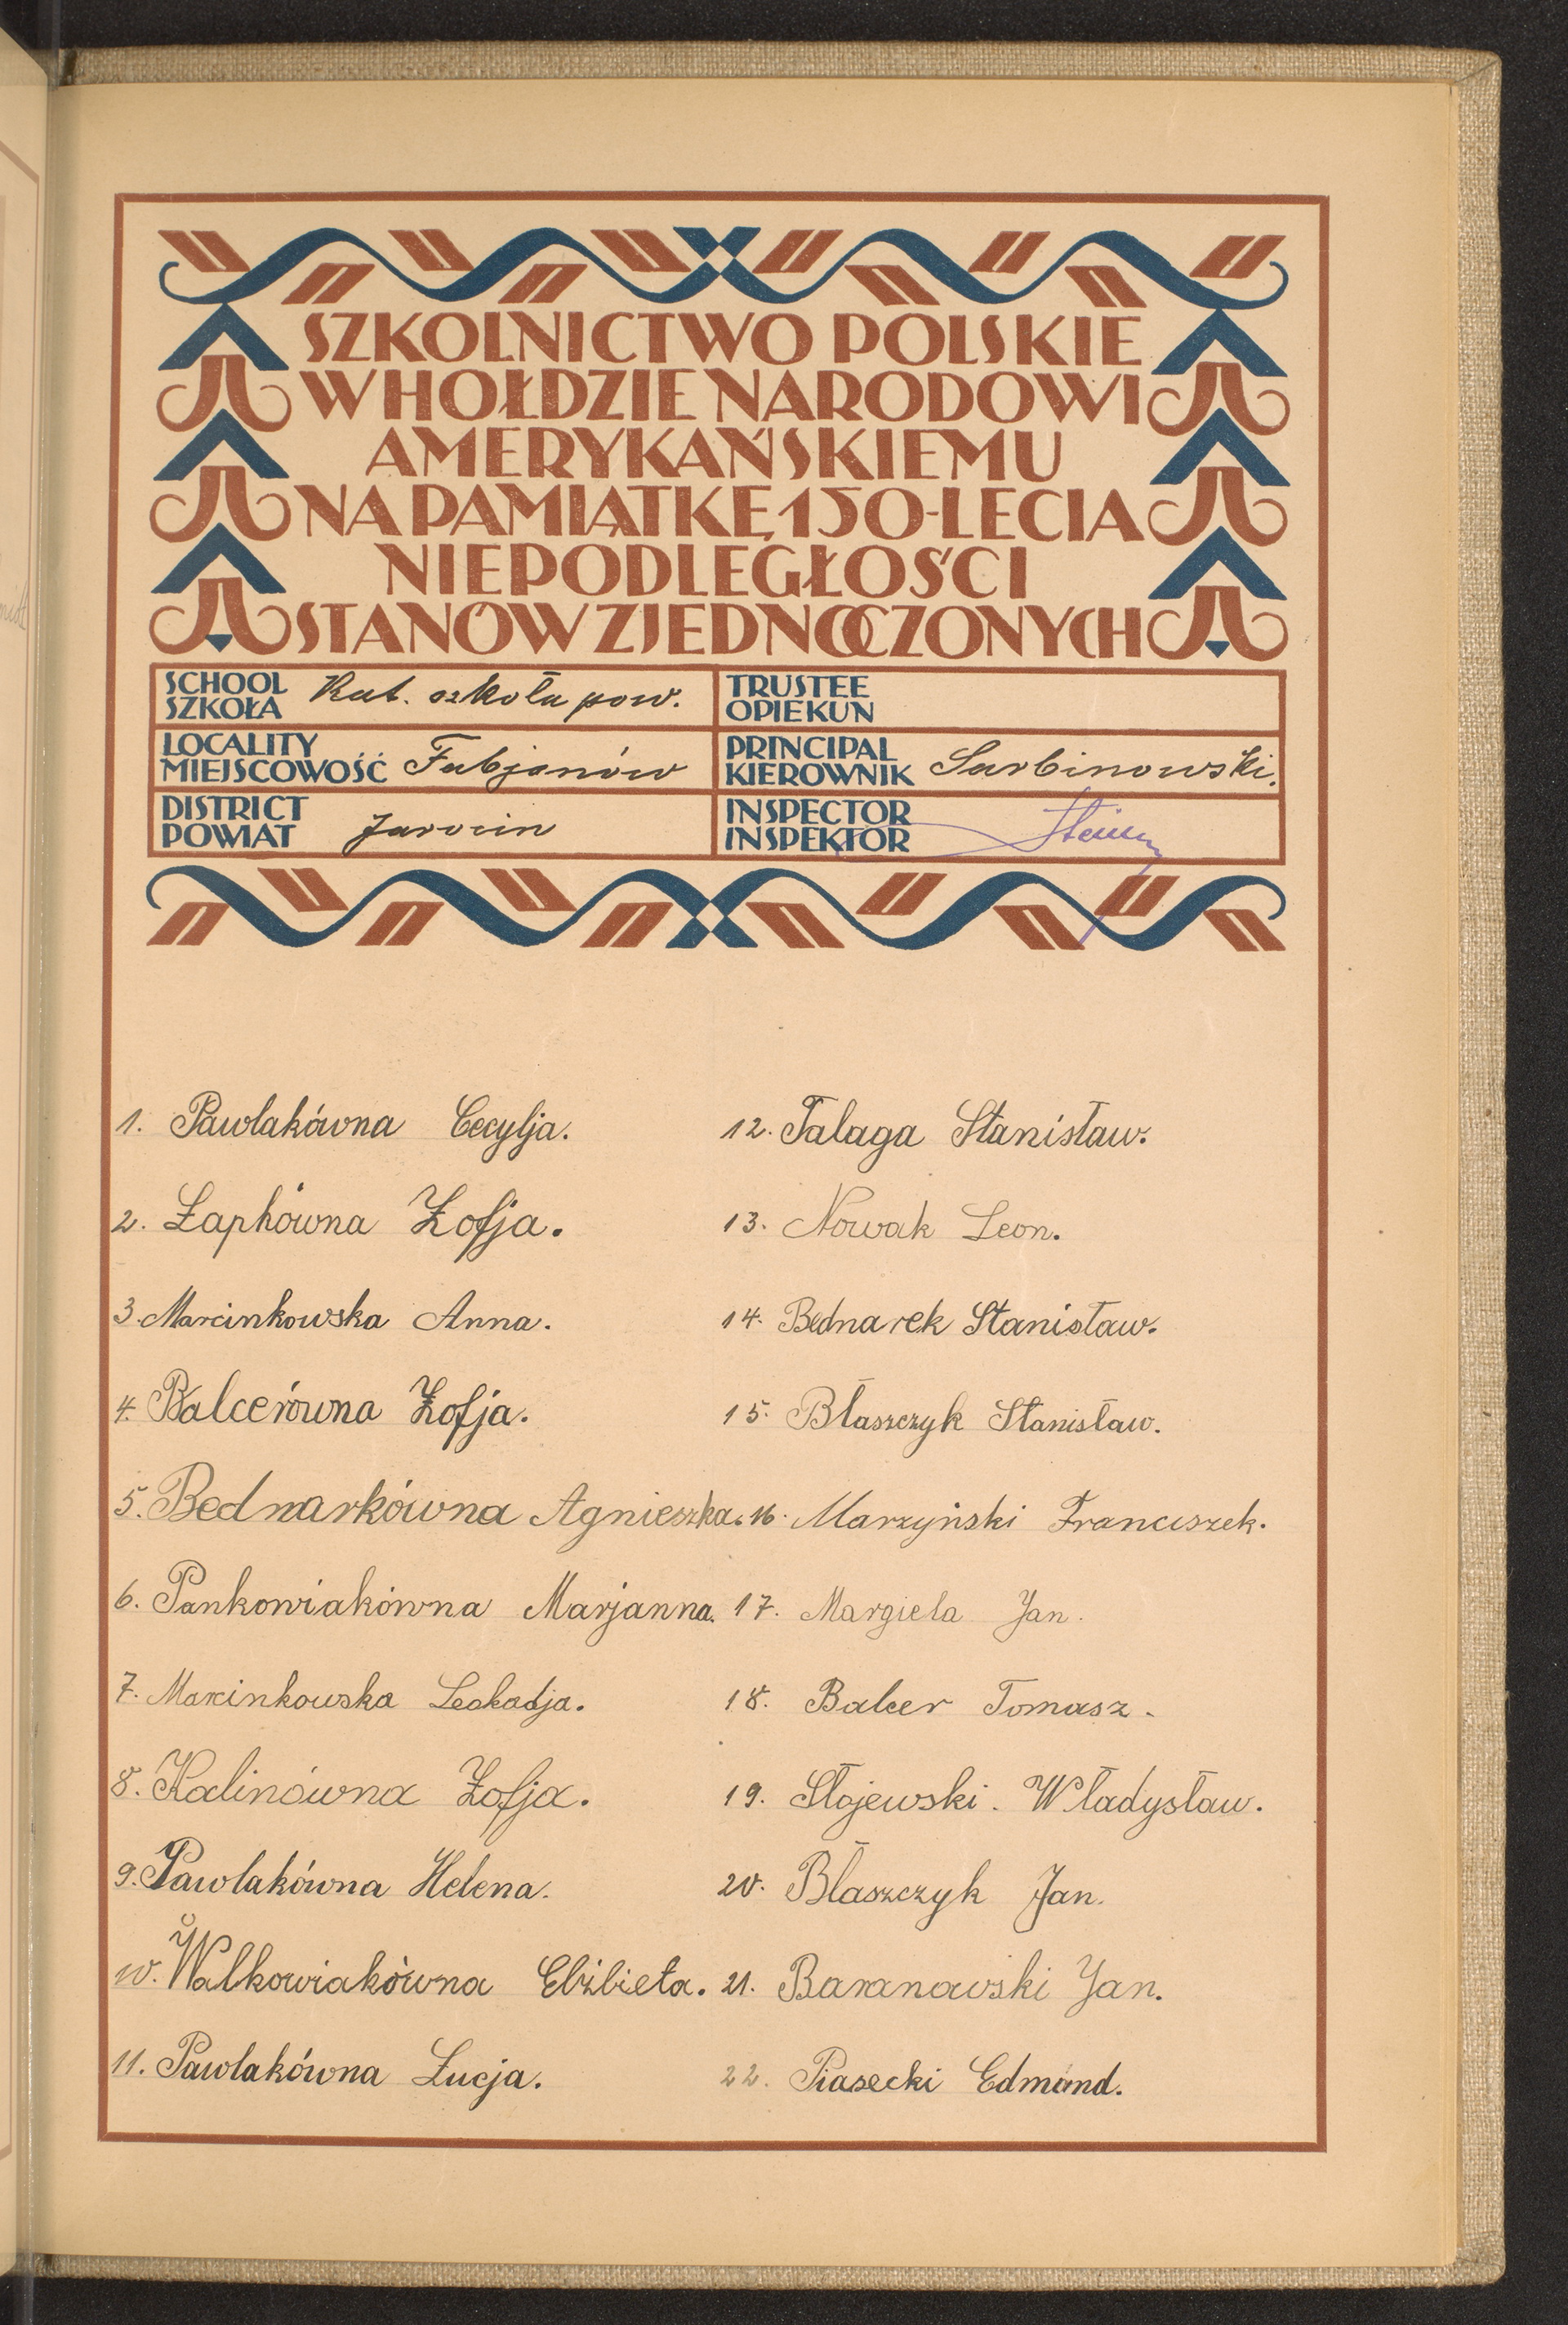 SZKOLNICTWO POLSKIE
W HOŁDZIE NARODOWI
AMERYKAŃSKIEMU
NA PAMIĄTKĘ 150-LECIA
NIEPODLEGŁOŚCI
STANÓW ZJEDNOCZONYCH
SCHOOL
SZKOŁA Kat. szkoła pow.
TRUSTEE
OPIEKUN
LOCALITY
MIEJSCOWOŚĆ Fabjanów
PRINCIPAL
KIEROWNIK Sarbinowski.
DISTRICT
POWIAT Jarocin
INSPECTOR
INSPEKTOR
1. Pawlakówna Cecylja.
2. Łapkówna Zofja.
3. Marcinkowska Anna.
4. Balcerówna Zofja.
5. Bednarkówna Agnieszka.
6. Pankowiakówna Marjanna.
7. Marcinkowska Leokadja.
8. Kalinówna Zofja.
9. Pawlakówna Helena.
10. Walkowiakówna Elżbieta.
11. Pawlakówna Łucja.
12. Talaga Stanisław.
13. Nowak Leon.
14. Bednarek Stanisław.
15. Błaszczyk Stanisław.
16. Marzyński Franciszek.
17. Margiela Jan.
18. Balcer Tomasz.
19. Stojewski. Władysław.
20. Błaszczyk Jan.
21. Baranowski Jan.
22. Piasecki Edmund.